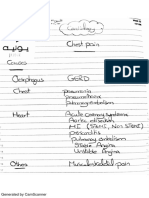 Cardiology
يونيه
Chest pain
Causes
Oesophagus GORD
Chest pneumonia
pneumothorax
Pulmonary embolism
Heart Acute Coronary syndrome
Aortic dissection
MI (STEMI, Non STEMI)
pericarditis
pulmonary embolism
Stable Angina
Unstable Angina
Others Musculoskeletal pain
Generated by CamScanner